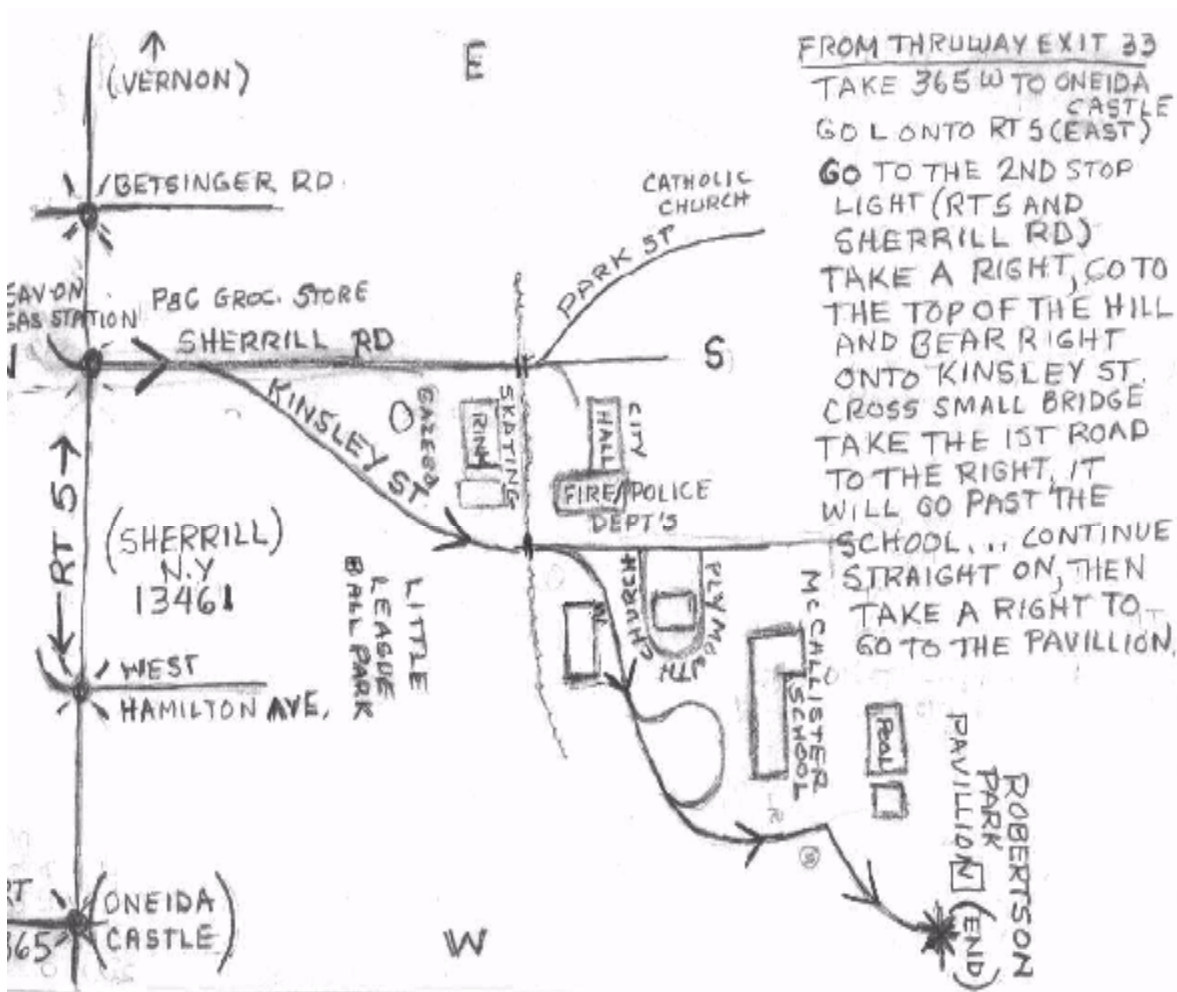 (VERNON)
E
BETSINGER RD.
SAV-ON
GAS STATION
P&C GROC. STORE
SHERRILL RD
PARK ST
CATHOLIC
CHURCH
S
KINSLEY ST
GAZEBO
SKATING
RINK
CITY
HALL
FIRE/POLICE
DEPT'S
RT 5
(SHERRILL)
N.Y
13461
LITTLE
LEAGUE
BALL PARK
PLYMOUTH
CHURCH
McCALLISTER
SCHOOL
WEST
HAMILTON AVE,
POOL
ROBERTSON
PARK
PAVILLION
(END)
RT
365
(ONEIDA
CASTLE)
W
FROM THRUWAY EXIT 33
TAKE 365 W TO ONEIDA
CASTLE
GO L ONTO RT 5 (EAST)
GO TO THE 2ND STOP
LIGHT (RT 5 AND
SHERRILL RD)
TAKE A RIGHT, GO TO
THE TOP OF THE HILL
AND BEAR RIGHT
ONTO KINSLEY ST.
CROSS SMALL BRIDGE
TAKE THE 1ST ROAD
TO THE RIGHT, IT
WILL GO PAST THE
SCHOOL... CONTINUE
STRAIGHT ON, THEN
TAKE A RIGHT TO
GO TO THE PAVILLION.